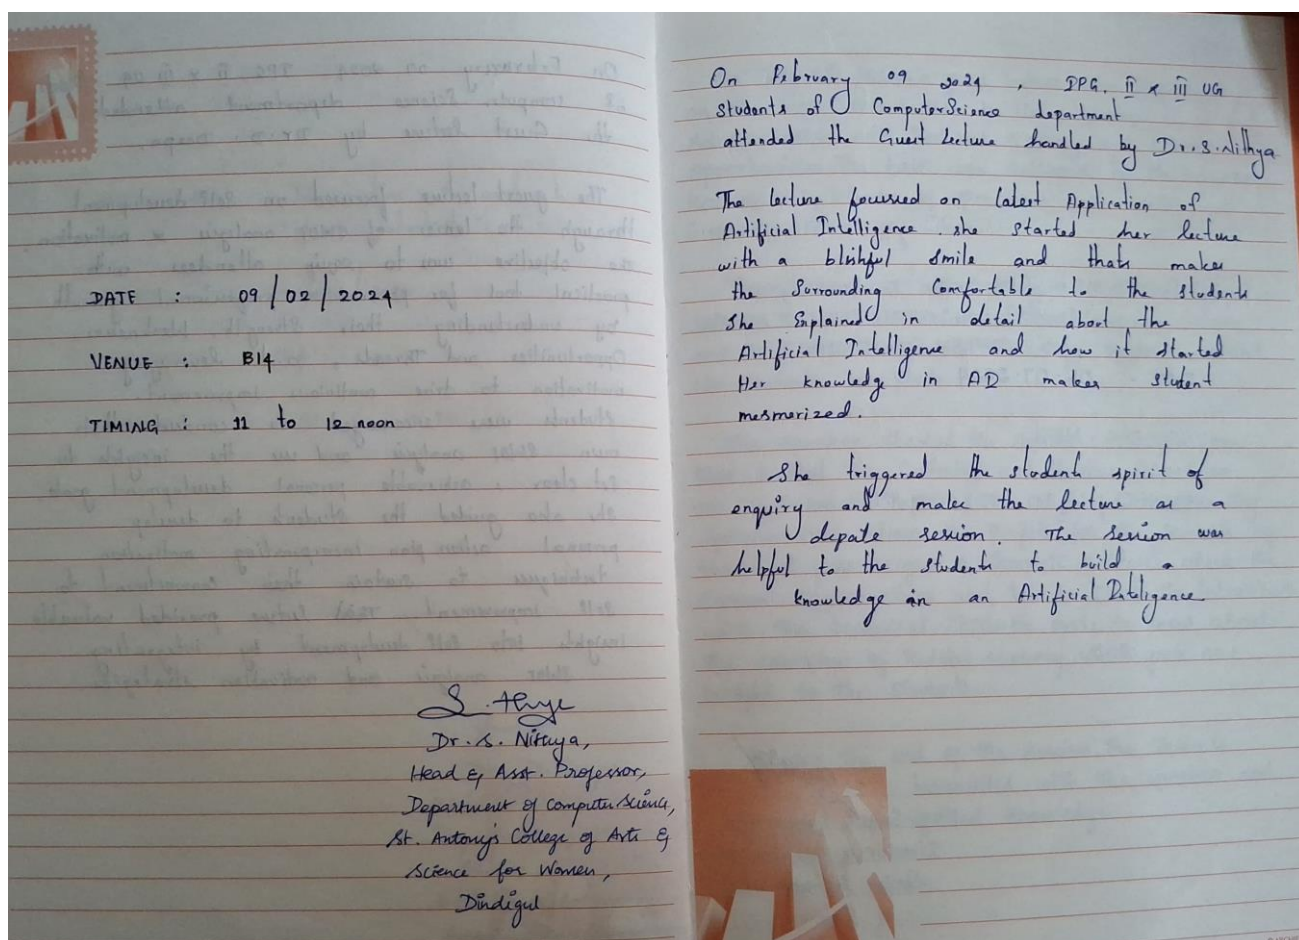 DATE : 09/02/2024
VENUE : B14
TIMING : 11 to 12 noon
Dr. S. Nithya,
Head & Asst. Professor,
Department of Computer Science,
St. Antony's College of Arts &
Science for Women,
Dindigul
On February 09 2024 , IPG, II & III UG
Students of Computer Science department
attended the Guest Lecture handled by Dr. S. Nithya
The lecture focussed on latest Application of
Artificial Intelligence. She started her lecture
with a blishful smile and thats makes
the Surrounding Comfortable to the students
She Explained in detail about the
Artificial Intelligence and how it started
Her knowledge in AD makes student
mesmerized.
She triggered the students spirit of
enquiry and makes the lecture as a
depate session. The session was
helpful to the students to build a
knowledge in an Artificial Inteligence